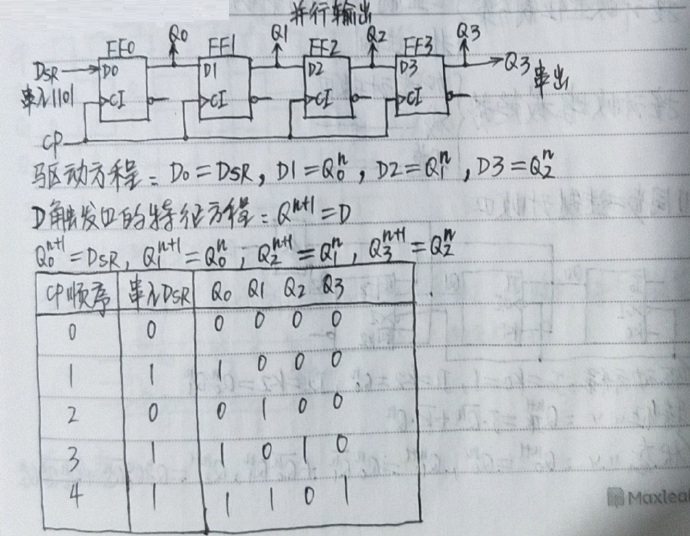 并行输出
FF0 Q0 FF1 Q1 FF2 Q2 FF3 Q3
DSR D0 D1 D2 D3 Q3 串出
串入1101 CI CI CI CI
CP
驱动方程：D0=DSR，D1=Q0^n，D2=Q1^n，D3=Q2^n
D触发器的特征方程：Q^n+1=D
Q0^n+1=DSR，Q1^n+1=Q0^n，Q2^n+1=Q1^n，Q3^n+1=Q2^n
CP顺序 串入DSR Q0 Q1 Q2 Q3
0 0 0 0 0 0
1 1 1 0 0 0
2 0 0 1 0 0
3 1 1 0 1 0
4 1 1 1 0 1
Maxleaf